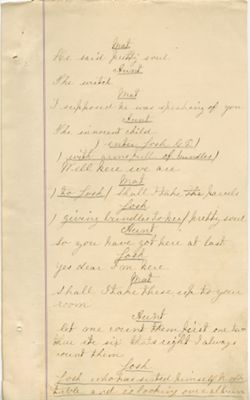 Mat
He said pretty soul
Aunt
The wretch
Mat
I supposed he was speaking of you
Aunt
The innocent child
(enter Josh C.D.)
(with arms full of bundles)
Well here we are
Mat
(to Josh) shall I take the parcels
Josh
(giving bundles to her) pretty soul
Aunt
So you have got here at last
Josh
yes dear I'm here
Mat
shall I take these up to your
room
Aunt
let me count them first one two
five six that's right I always
count them
Josh
Josh who has seated himself
table and is looking over album